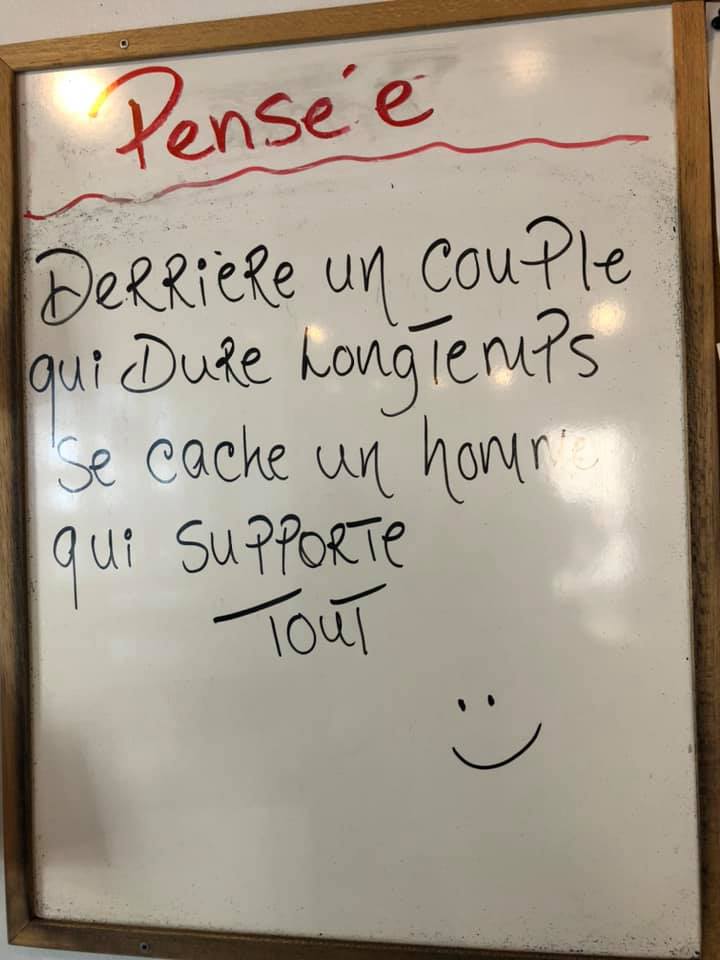 Pensée
Derrière un couple
qui Dure Longtemps
se cache un homme
qui supporte
Tout